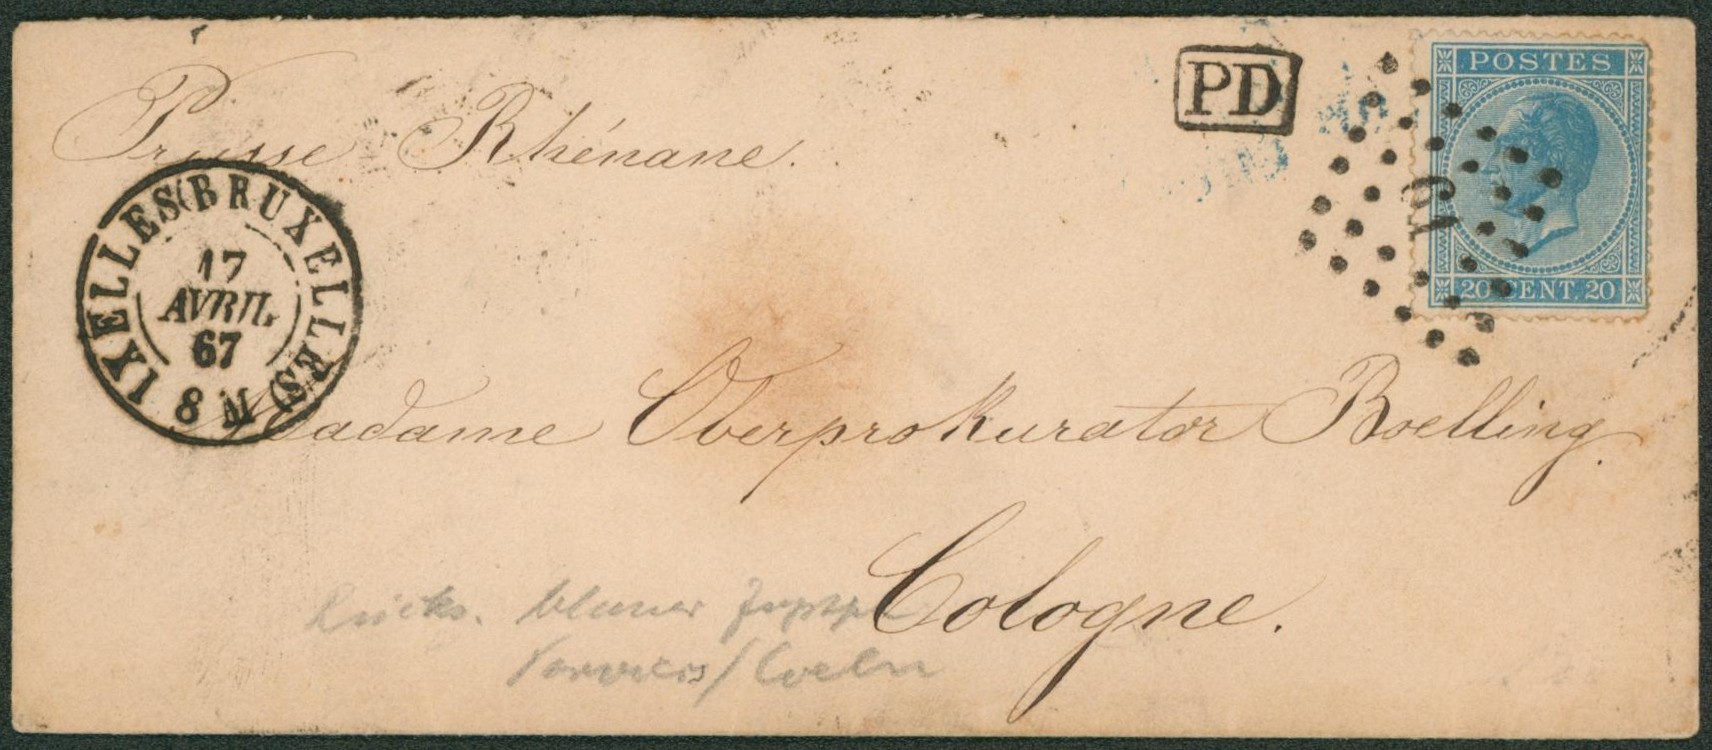 Prusse Rhénane.
PD
POSTES
20 CENT. 20
IXELLES (BRUXELLES)
17
AVRIL
67
8 M
Madame Oberprokurator Boelling.
Cologne.
Rücks. blauer
Verviers/Coeln